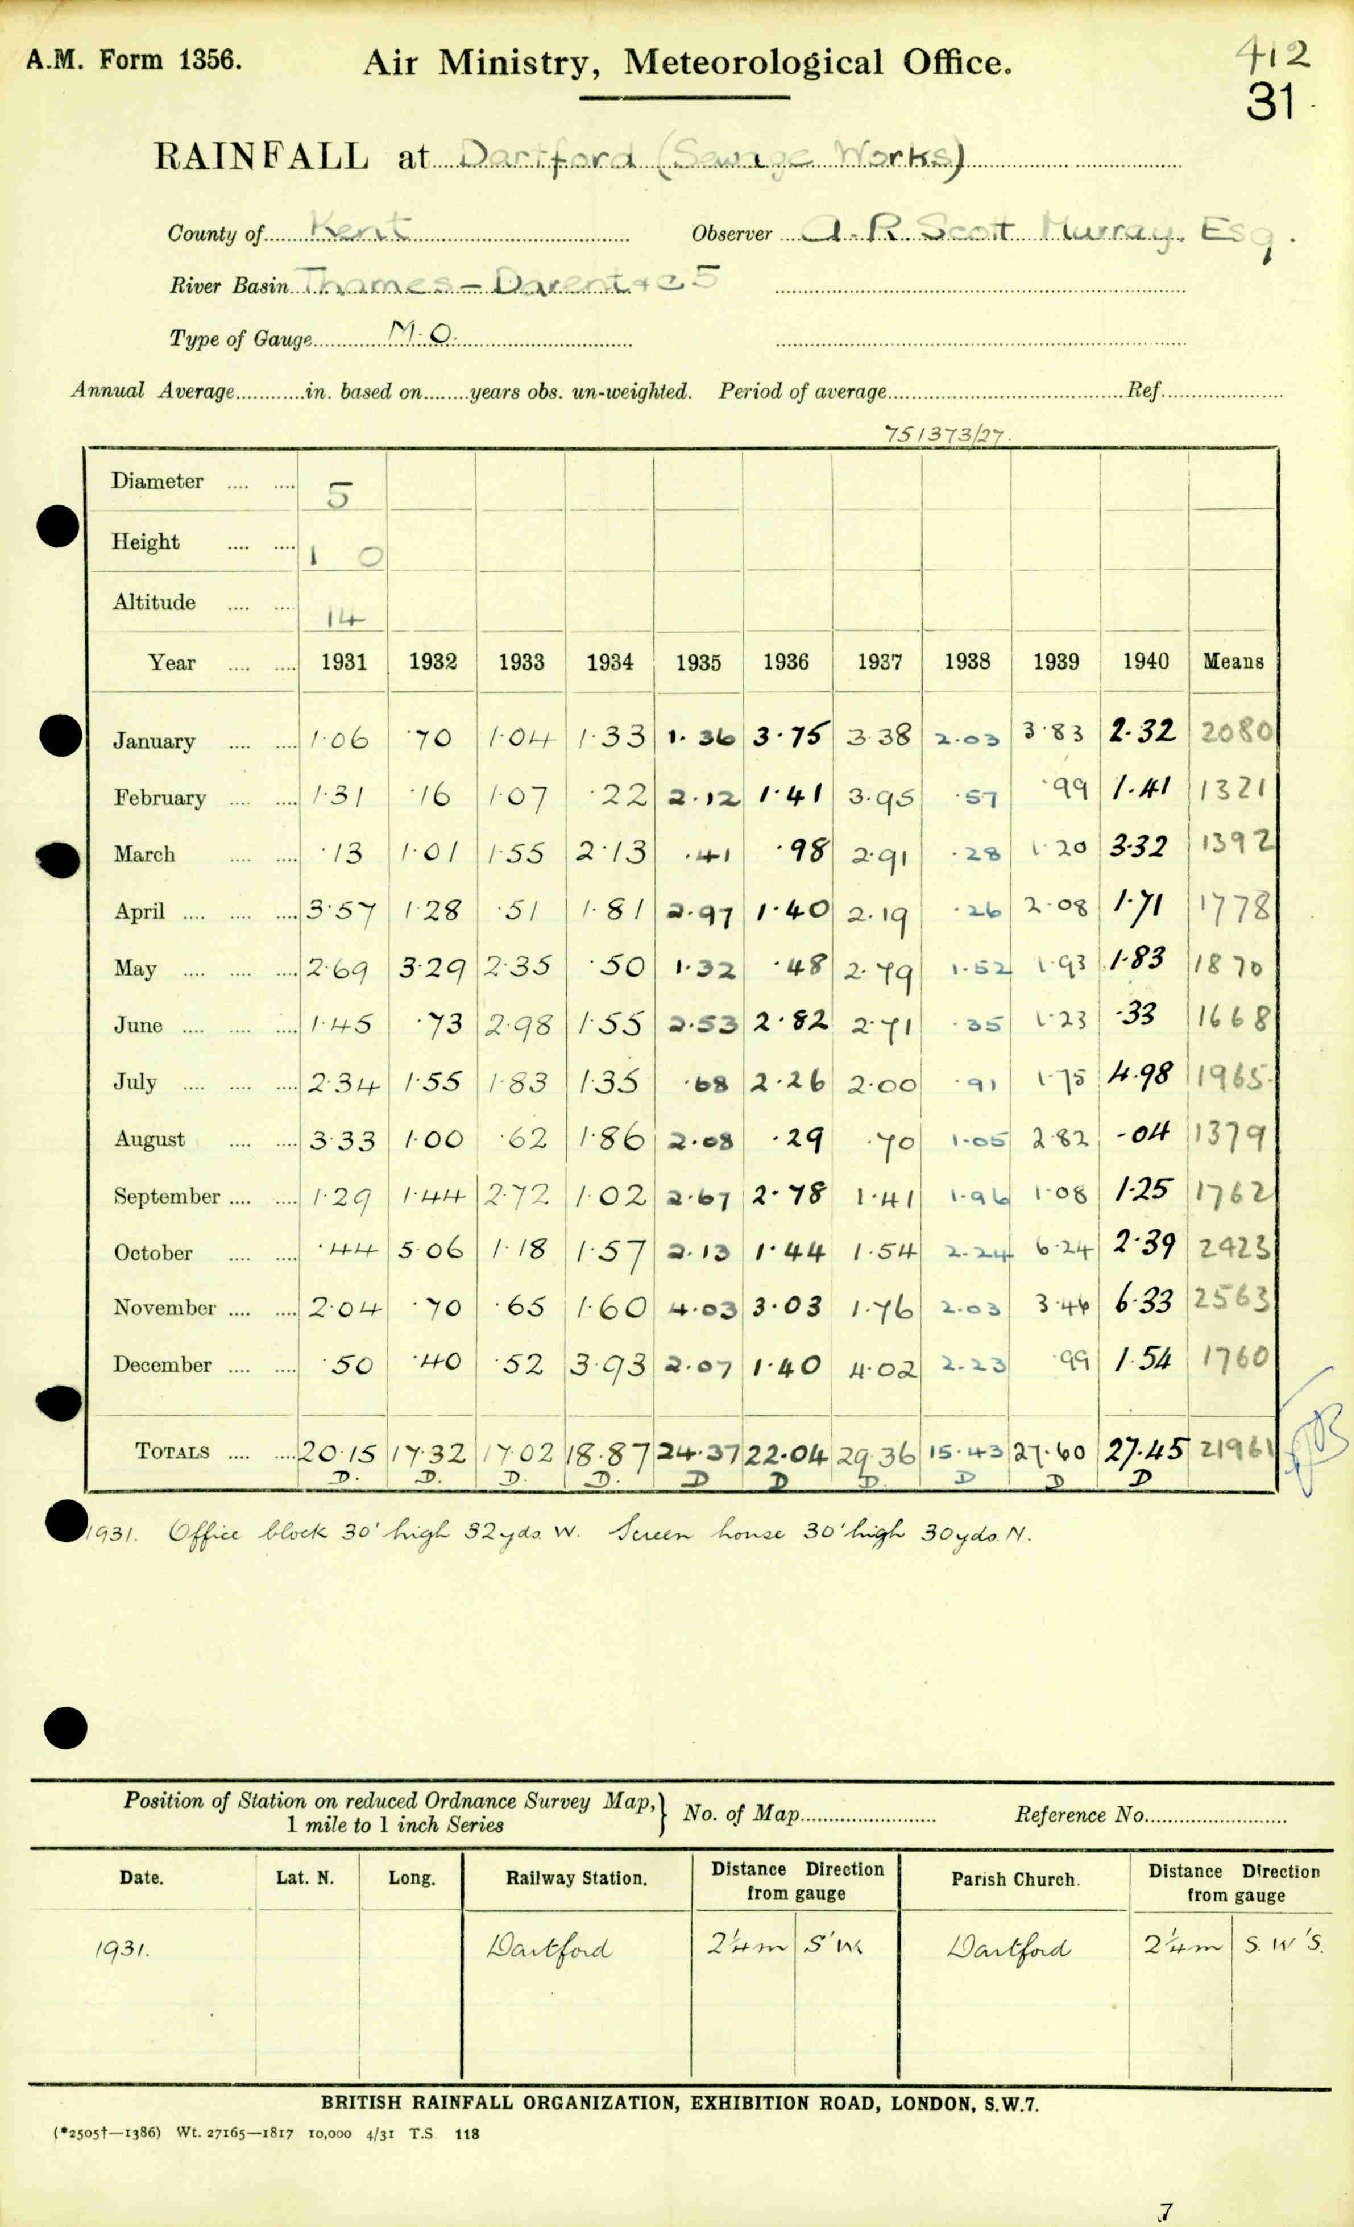 A.M. Form 1356.
Air Ministry, Meteorological Office.
412
31
RAINFALL at Dartford (Sewage Works)
County of Kent Observer A. R. Scott Murray, Esq.
River Basin Thames – Darent &c 5
Type of Gauge M.O.
Annual Average in. based on years obs. un-weighted. Period of average Ref.
751373/27.
Diameter 5
Height 1 0
Altitude 14
Year 1931 1932 1933 1934 1935 1936 1937 1938 1939 1940 Means
January 1·06 ·70 1·04 1·33 1·36 3·75 3·38 2·03 3·83 2·32 2080
February 1·31 ·16 1·07 ·22 2·12 1·41 3·95 ·57 ·99 1·41 1321
March ·13 1·01 1·55 2·13 ·41 ·98 2·91 ·28 1·20 3·32 1392
April 3·57 1·28 ·51 1·81 2·97 1·40 2·19 ·26 2·08 1·71 1778
May 2·69 3·29 2·35 ·50 1·32 ·48 2·79 1·52 1·93 1·83 1870
June 1·45 ·73 2·98 1·55 2·53 2·82 2·71 ·35 1·23 ·33 1668
July 2·34 1·55 1·83 1·35 ·68 2·26 2·00 ·91 1·75 4·98 1965
August 3·33 1·00 ·62 1·86 2·08 ·29 ·70 1·05 2·82 ·04 1379
September 1·29 1·44 2·72 1·02 2·67 2·78 1·41 1·96 1·08 1·25 1762
October ·44 5·06 1·18 1·57 2·13 1·44 1·54 2·24 6·24 2·39 2423
November 2·04 ·70 ·65 1·60 4·03 3·03 1·76 2·03 3·46 6·33 2563
December ·50 ·40 ·52 3·93 2·07 1·40 4·02 2·23 ·99 1·54 1760
TOTALS 20·15 17·32 17·02 18·87 24·37 22·04 29·36 15·43 27·60 27·45 21961
D. D. D. D. D D D. D D D
1931. Office block 30' high 32yds. W. Screen house 30' high 30yds. N.
Position of Station on reduced Ordnance Survey Map, } No. of Map Reference No.
1 mile to 1 inch Series
Date. Lat. N. Long. Railway Station. Distance Direction from gauge Parish Church. Distance Direction from gauge
1931. Dartford 2¼m S'W Dartford 2¼m S.W'S.
BRITISH RAINFALL ORGANIZATION, EXHIBITION ROAD, LONDON, S.W.7.
(*2505†—1386) Wt. 27165—1817 10,000 4/31 T.S. 118
7